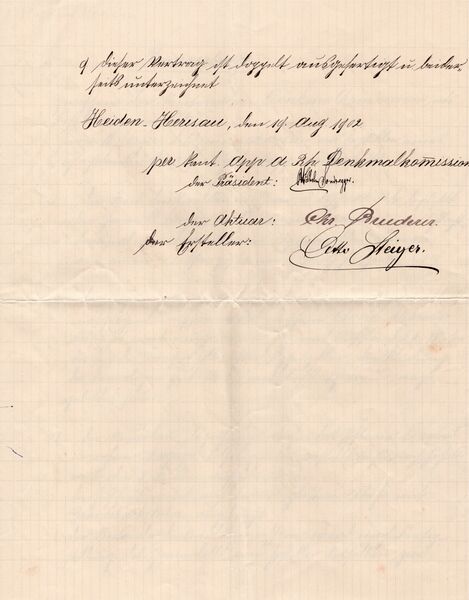 9 Dieser Vertrag ist doppelt ausgefertigt u beider
seits unterzeichnet
Heiden-Herisau, den 19. Aug 1902
per Kant. App. a. Rh. Denkmalkommission
der Präsident:
der Aktuar: Chr. Bruderer.
der Ersteller: Otto Steiger.